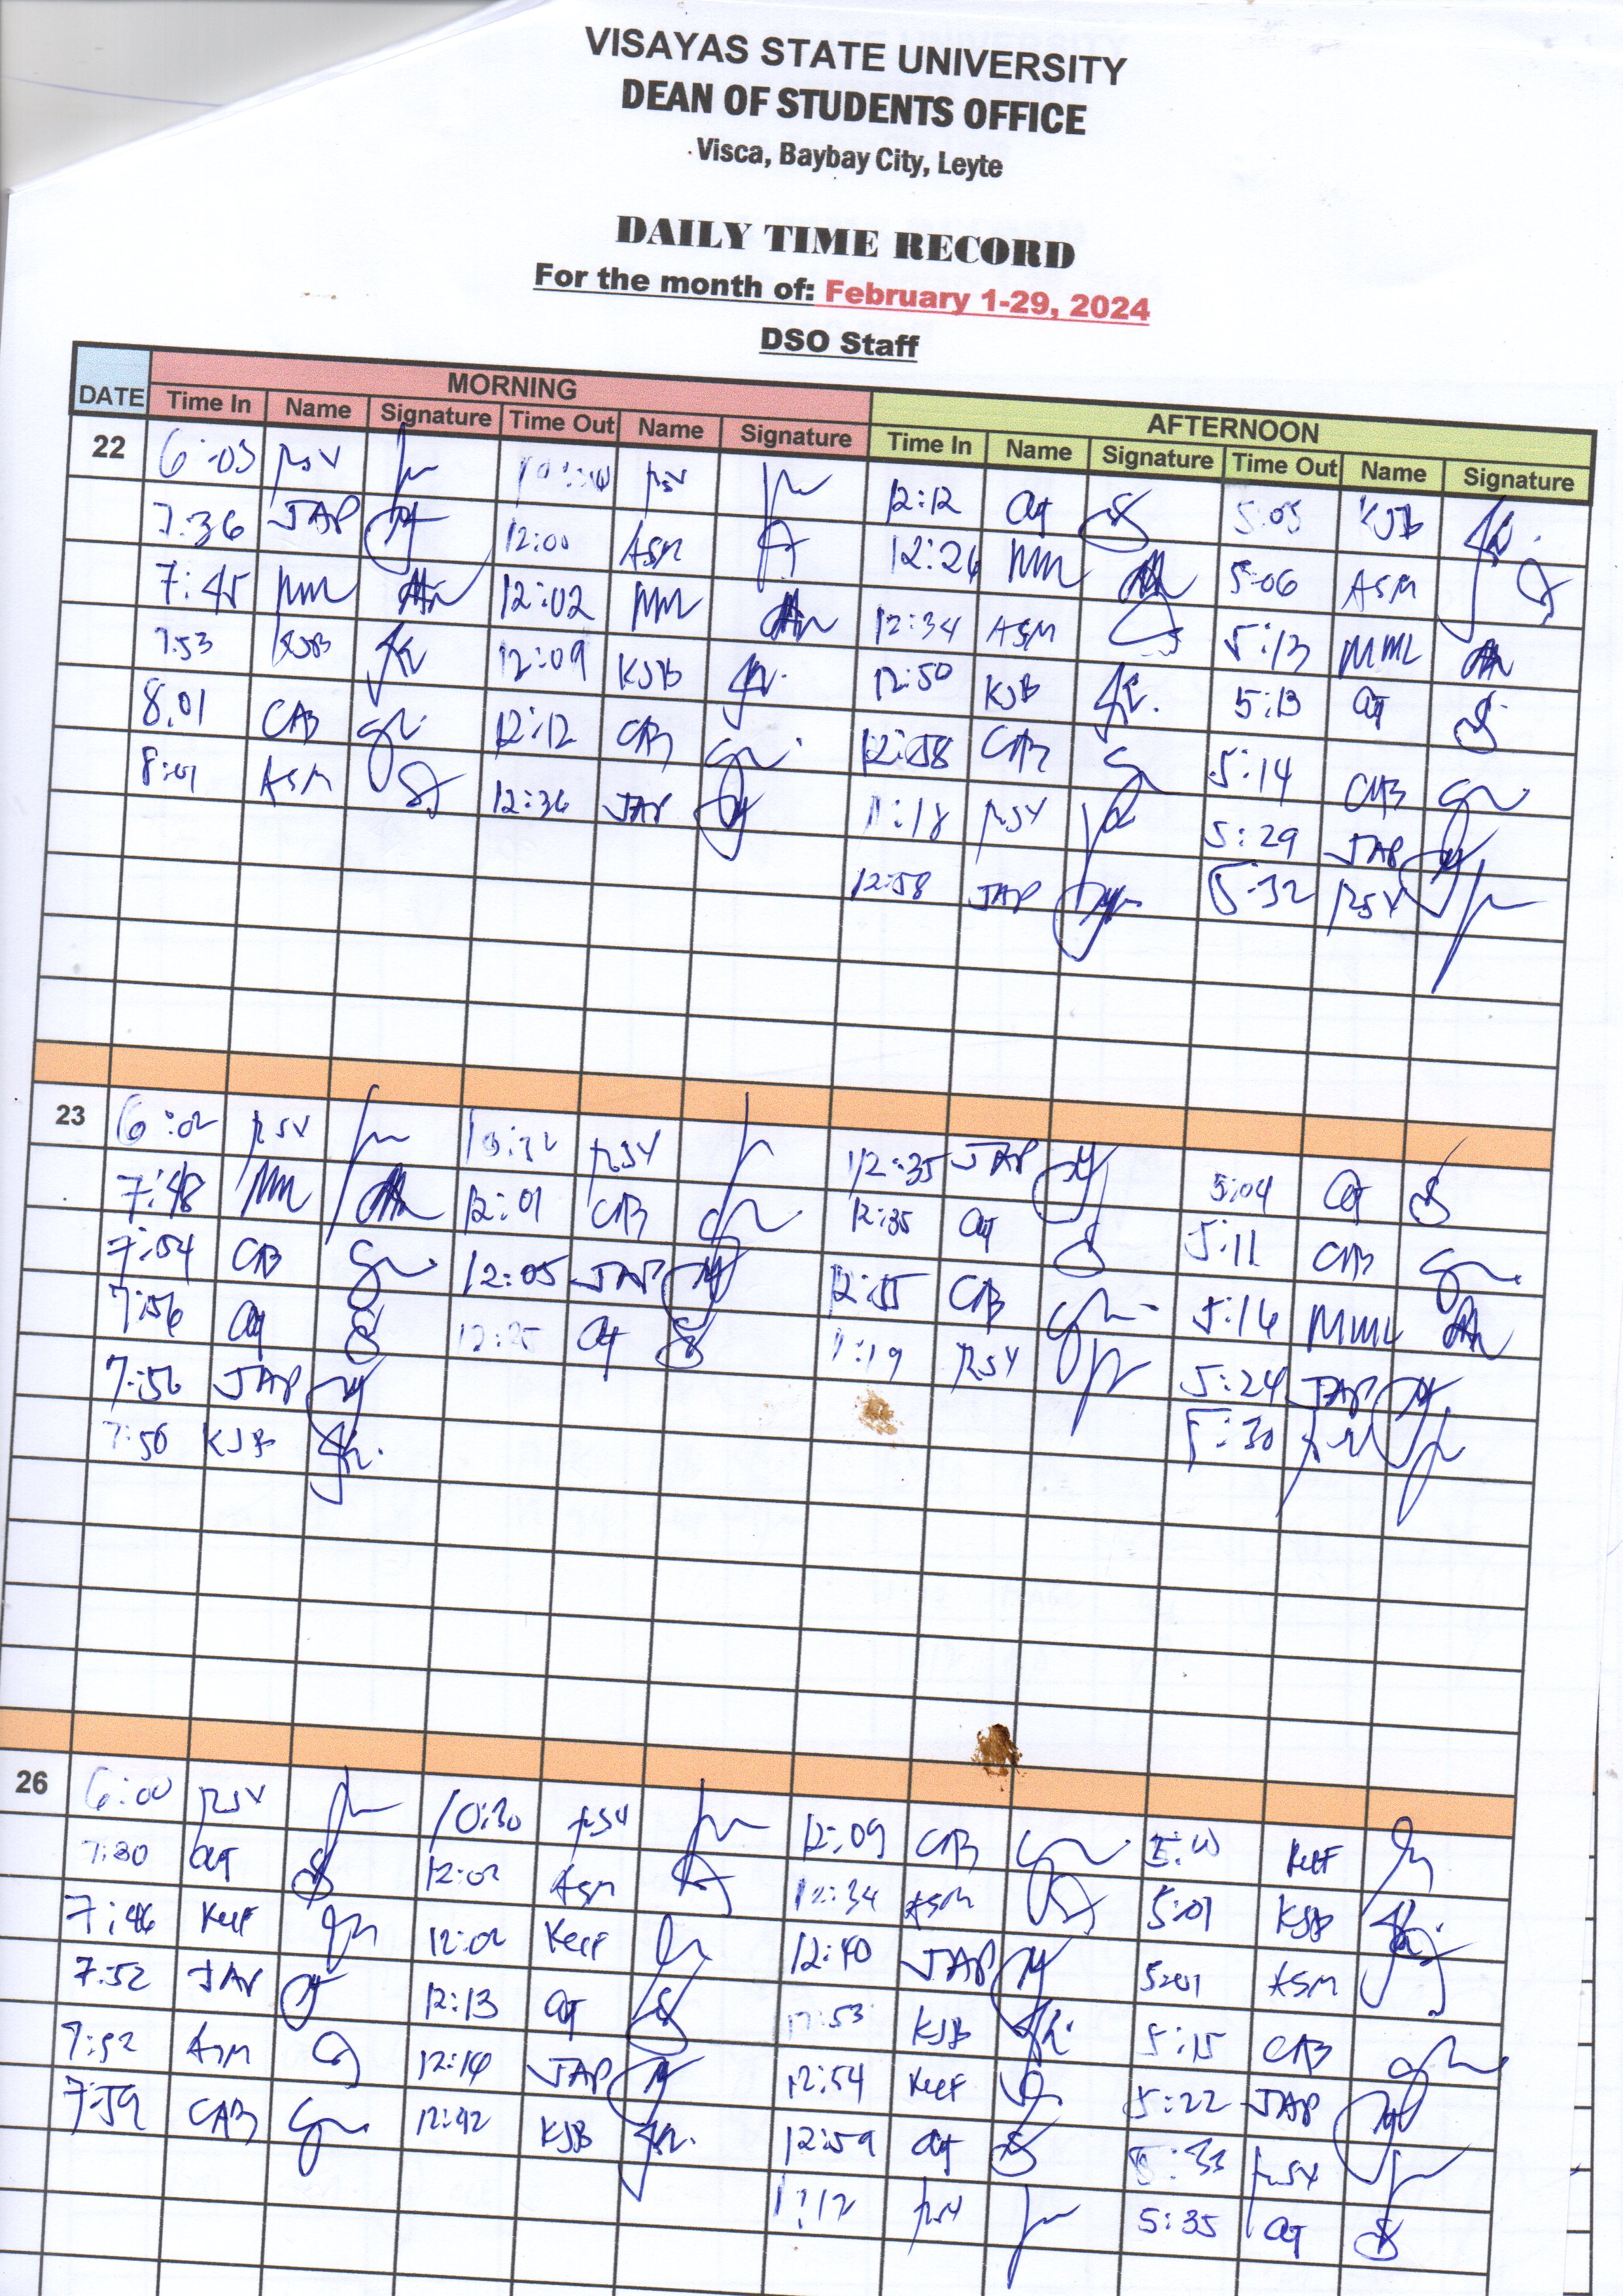 VISAYAS STATE UNIVERSITY
DEAN OF STUDENTS OFFICE
Visca, Baybay City, Leyte
DAILY TIME RECORD
For the month of: February 1-29, 2024
DSO Staff
DATE MORNING AFTERNOON
Time In Name Signature Time Out Name Signature Time In Name Signature Time Out Name Signature
22 6:03 RSV RSV 12:12 5:05 KJB
7:36 JAP 12:00 ASM 12:26 MM 5:06 ASM
7:45 MM 12:02 MM 12:34 ASM 5:13 MML
7:53 KJB 12:09 KJB 12:50 KJB 5:13
8:01 CAB 12:12 CAB 12:58 CAB 5:14 CAB
8:01 ASM 12:36 JAP 1:18 RSV 5:29 JAP
12:58 JAP 5:32 RSV
23 6:02 RSV 10:32 RSV 12:35 JAP 5:04
7:48 MM 12:01 CAB 12:35 5:11 CAB
7:54 CAB 12:05 JAP 12:55 CAB 5:16 MML
7:56 12:25 1:19 RSV 5:24 JAP
7:56 JAP 5:30
7:56 KJB
26 6:00 RSV 10:30 RSV 12:09 CAB
7:30 12:02 ASM 12:34 ASM 5:01 KJB
7:46 12:02 12:40 JAP 5:01 ASM
7:52 JAP 12:13 12:53 KJB 5:15 CAB
7:52 ASM 12:14 JAP 12:54 5:22 JAP
7:59 CAB 12:42 KJB 12:59 5:33 RSV
1:12 RSV 5:35